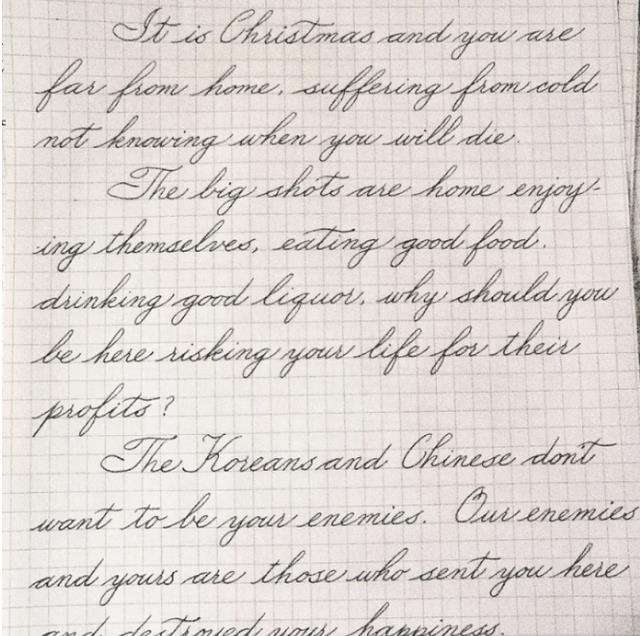 It is Christmas and you are
far from home, suffering from cold
not knowing when you will die.
The big shots are home enjoy-
ing themselves, eating good food,
drinking good liquor, why should you
be here risking your life for their
profits?
The Koreans and Chinese don't
want to be your enemies. Our enemies
and yours are those who sent you here
and destroyed your happiness.